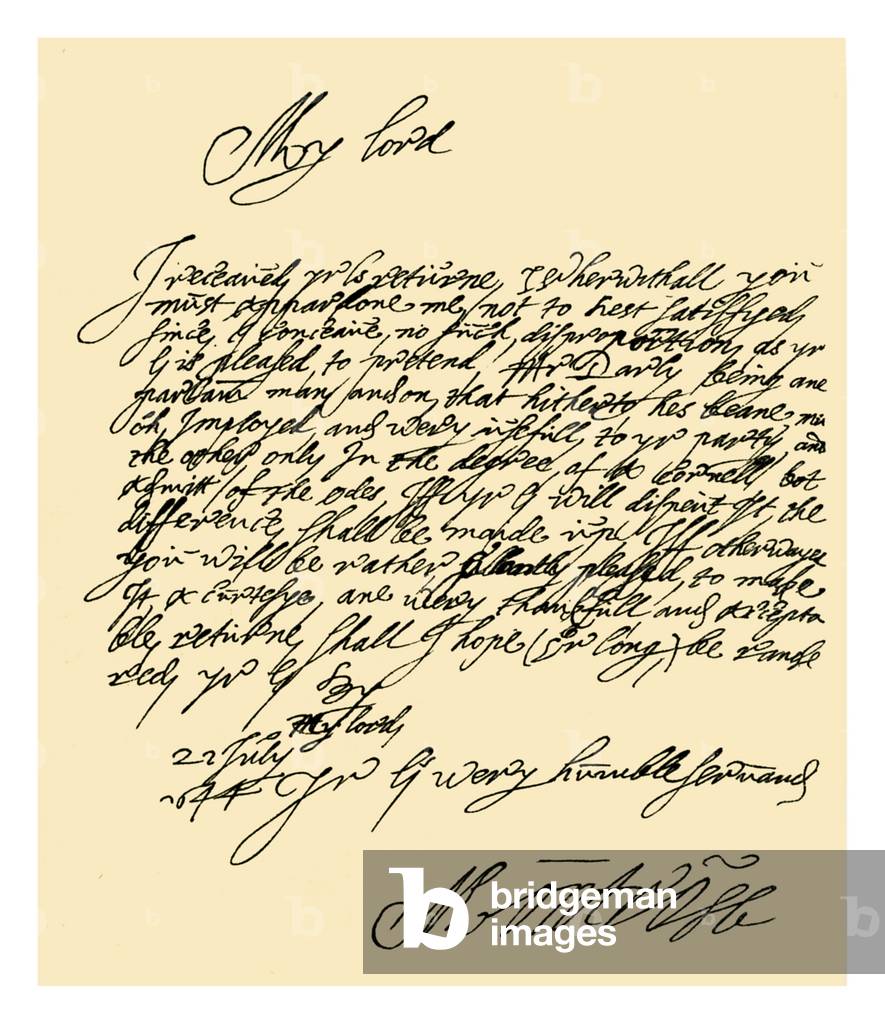 My lord
I receaued yr ls returne, wherwithall you
must pardone me not to rest satisfyed,
since I conceaue, no such, disproportion, as yr
ls is pleased, to pretend, Mr Darly being ane
man, and on, that hitherto hes beane, mu
ch, Imployed, and wery usefull, to yr party, and
the other only In the degree, of a cornell, bot
admitt of the odes, Iff yr ls will dispent It the
difference, shall be maide upe, Iff otherwayes
you will be rather pleased, to make
It, a curtesye, ane wery thankfull and accepta
ble, returne, shall I hope (er long,) be rande
red, yr ls
By
My lord,
22 July
1644 Yr ls wery humble seruand
Montrose
bridgeman
images